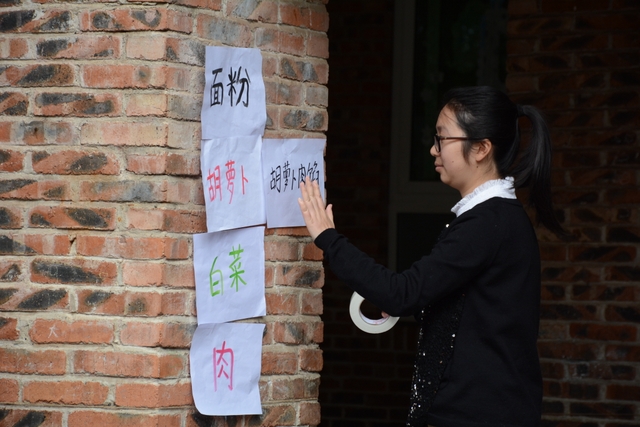 面粉
胡萝卜
胡萝卜肉馅
白菜
肉